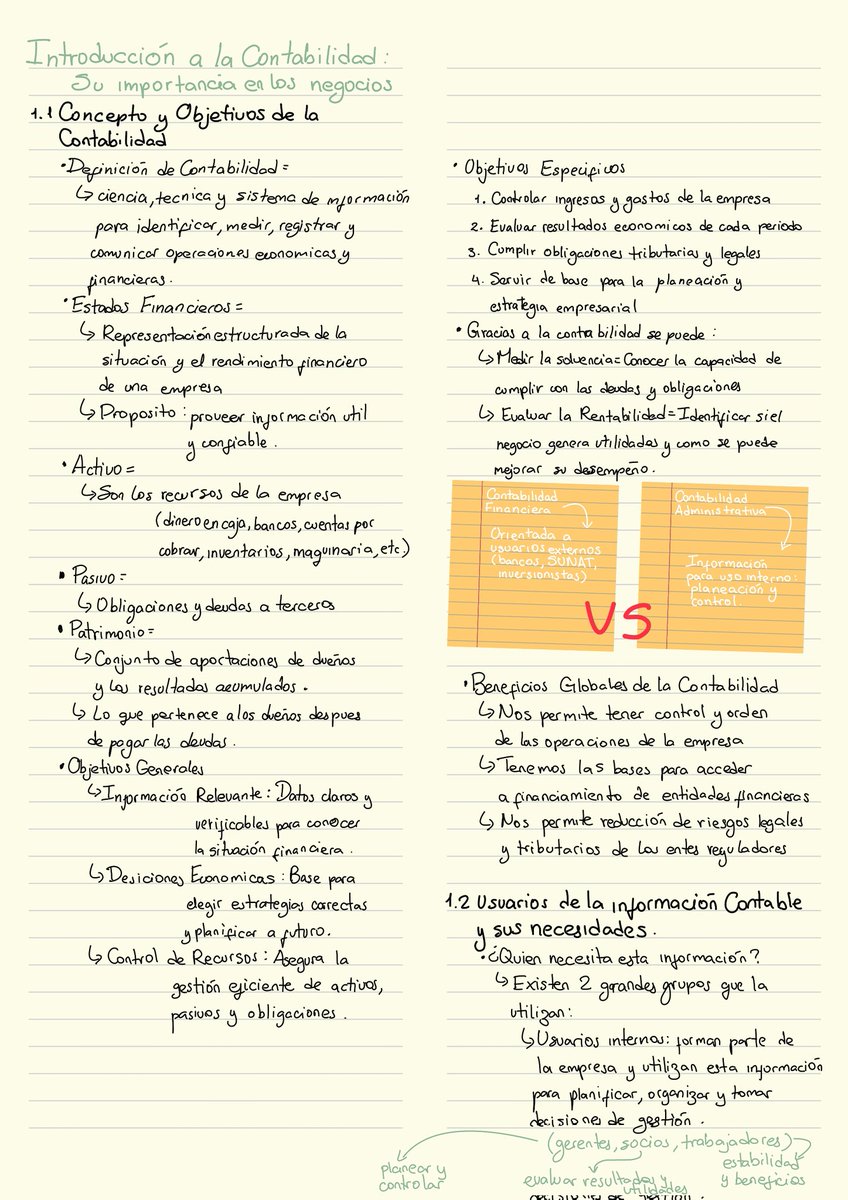 Introducción a la Contabilidad:
Su importancia en los negocios
1.1 Concepto y Objetivos de la
Contabilidad
•Definición de Contabilidad=
↳ ciencia, tecnica y sistema de información
para identificar, medir, registrar y
comunicar operaciones economicas y
financieras.
•Estados Financieros=
↳ Representación estructurada de la
situación y el rendimiento financiero
de una empresa
↳ Proposito: proveer información util
y confiable.
• Activo=
↳ Son los recursos de la empresa
(dinero en caja, bancos, cuentas por
cobrar, inventarios, maquinaria, etc.)
• Pasivo=
↳ Obligaciones y deudas a terceros
• Patrimonio=
↳ Conjunto de aportaciones de dueños
y los resultados acumulados.
↳ Lo que pertenece a los dueños despues
de pagar las deudas.
• Objetivos Generales
↳ Información Relevante: Datos claros y
verificables para conocer
la situación financiera.
↳ Desiciones Economicas: Base para
elegir estrategias correctas
y planificar a futuro.
↳ Control de Recursos: Asegura la
gestión eficiente de activos,
pasivos y obligaciones.
• Objetivos Especificos
1. Controlar ingresos y gastos de la empresa
2. Evaluar resultados economicos de cada periodo
3. Cumplir obligaciones tributarias y legales
4. Servir de base para la planeación y
estrategia empresarial
• Gracias a la contrabilidad se puede:
↳ Medir la solvencia=Conocer la capacidad de
cumplir con las deudas y obligaciones
↳ Evaluar la Rentabilidad=Identificar si el
negocio genera utilidades y como se puede
mejorar su desempeño.
Contabilidad
Financiera
Orientada a
usuarios externos
(bancos, SUNAT,
inversionistas)
VS
Contabilidad
Administrativa
Información
para uso interno:
planeación y
control.
•Beneficios Globales de la Contabilidad
↳ Nos permite tener control y orden
de las operaciones de la empresa
↳ Tenemos las bases para acceder
a financiamiento de entidades financieras
↳ Nos permite reducción de riesgos legales
y tributarios de los entes reguladores
1.2 Usuarios de la información Contable
y sus necesidades.
•¿Quien necesita esta información?
↳ Existen 2 grandes grupos que la
utilizan:
↳ Usuarios internos: forman parte de
la empresa y utilizan esta información
para planificar, organizar y tomar
decisiones de gestión.
(gerentes, socios, trabajadores)
planear y
controlar
evaluar resultados y
utilidades
estabilidad
y beneficios